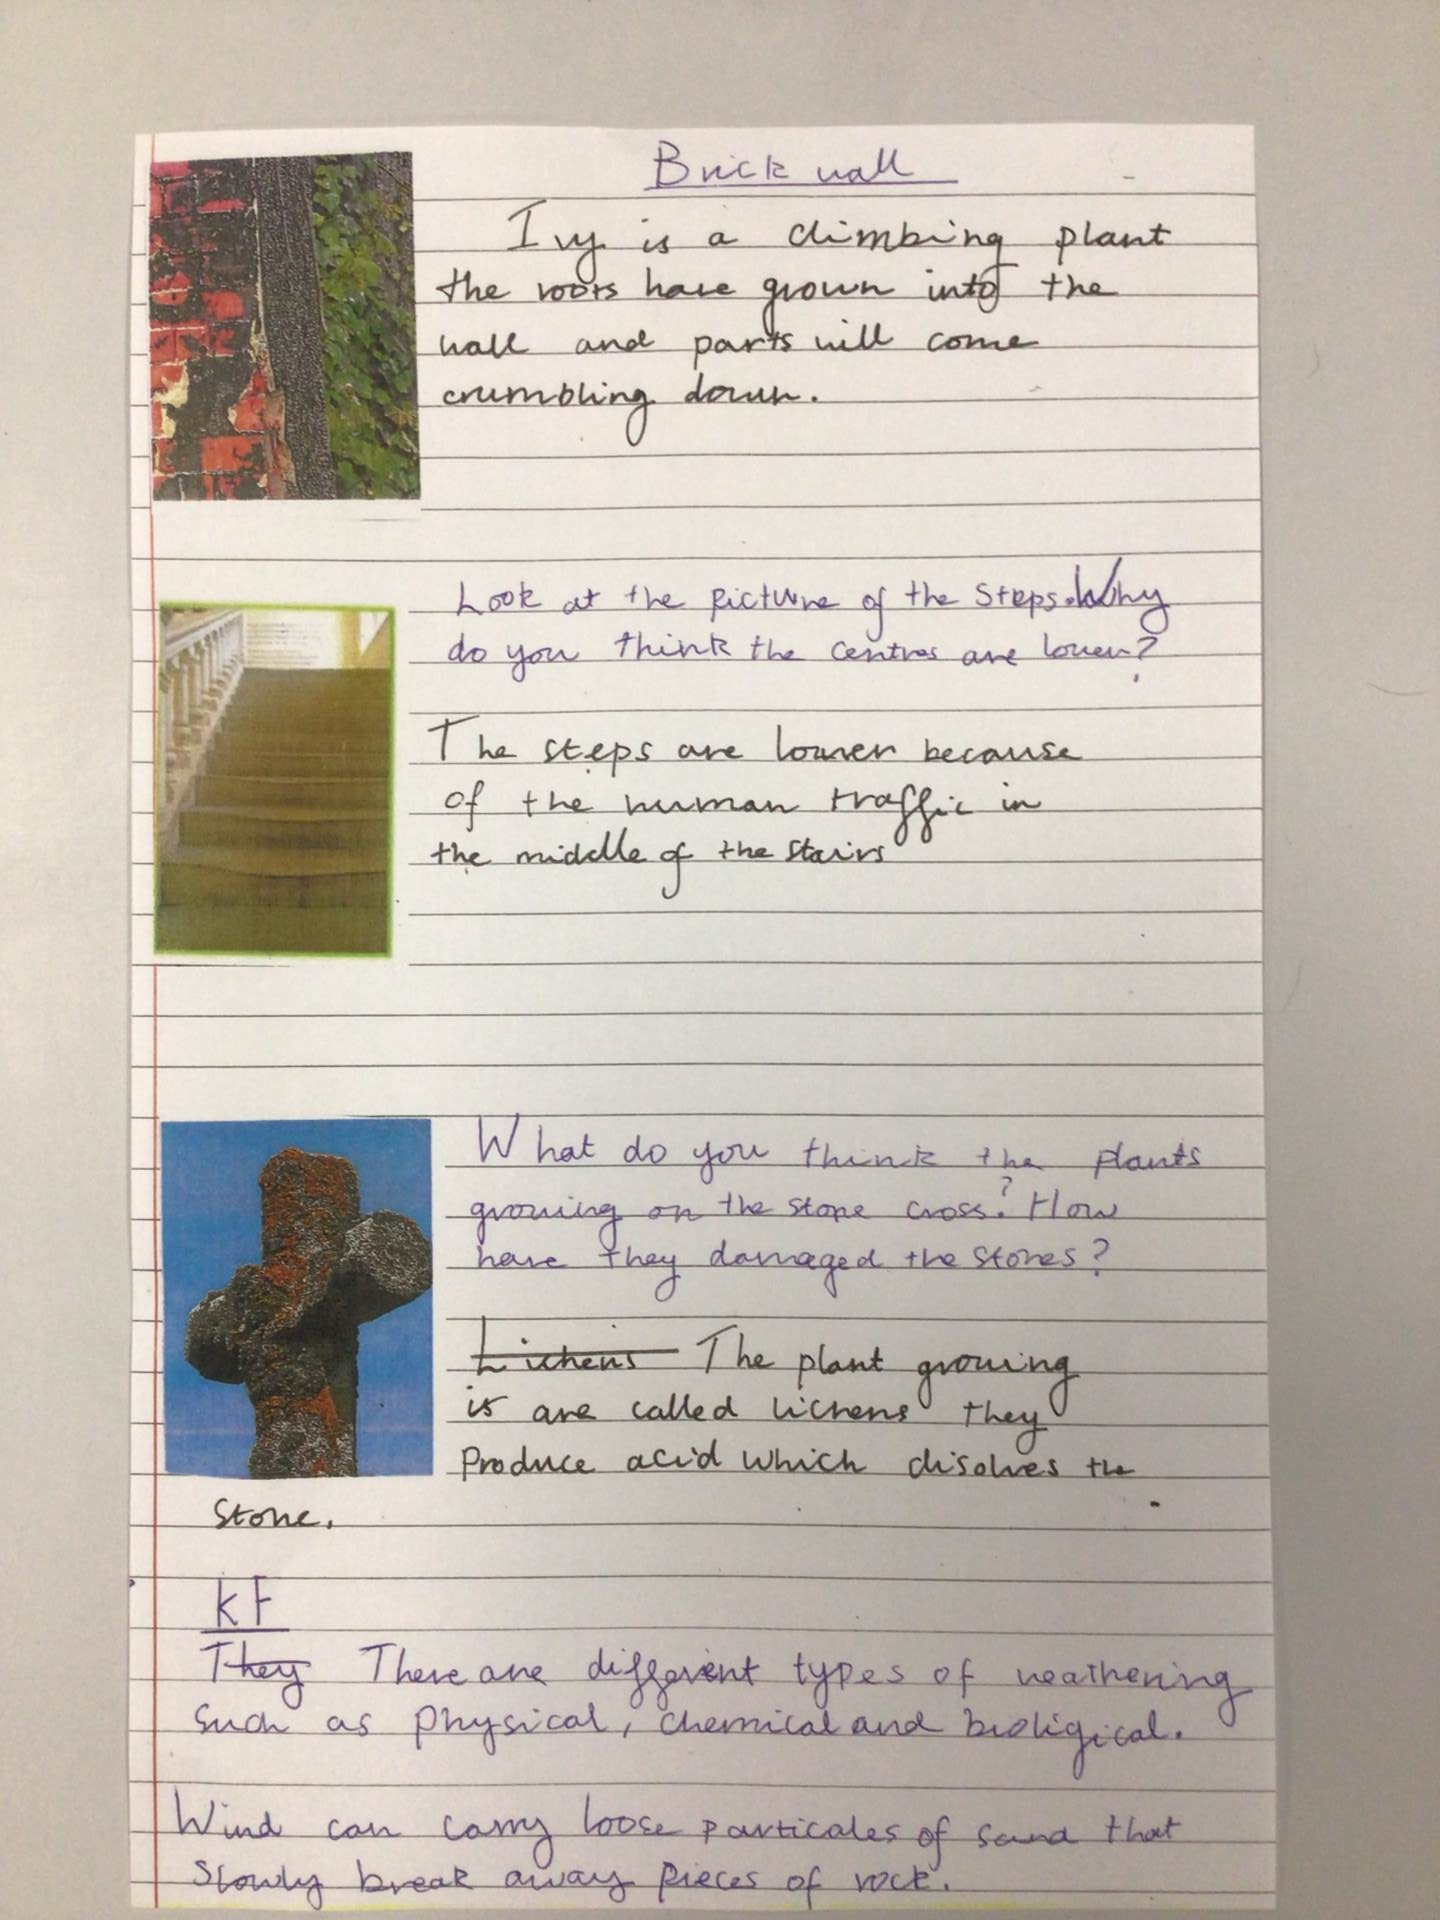 Brick wall
Ivy is a climbing plant
the roots have grown into the
wall and parts will come
crumbling down.
Look at the picture of the steps. Why
do you think the centres are lower?
The steps are lower because
of the human traffic in
the middle of the stairs
What do you think the plants
growing on the stone cross? How
have they damaged the stones?
Lichens The plant growing
is are called lichens they
produce acid which disolves the
stone.
KF
They There are different types of weathering
such as physical, chemical and bioligical.
Wind can carry loose particales of sand that
slowly break away pieces of rock.